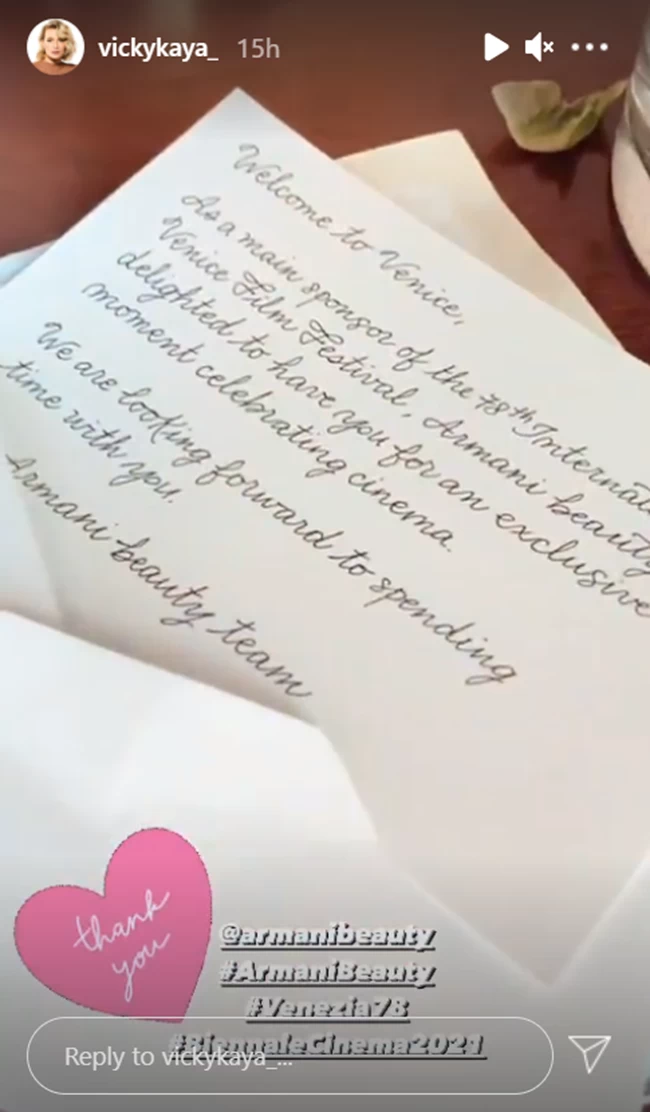 vickykaya_ 15h
Welcome to Venice,
As a main sponsor of the 78th Internat
Venice Film Festival, Armani beauty
delighted to have you for an exclusive
moment celebrating cinema.
We are looking forward to spending
time with you.
Armani beauty team
thank
you
@armanibeauty
#ArmaniBeauty
#Venezia78
#BiennaleCinema2021
Reply to vickykaya_...